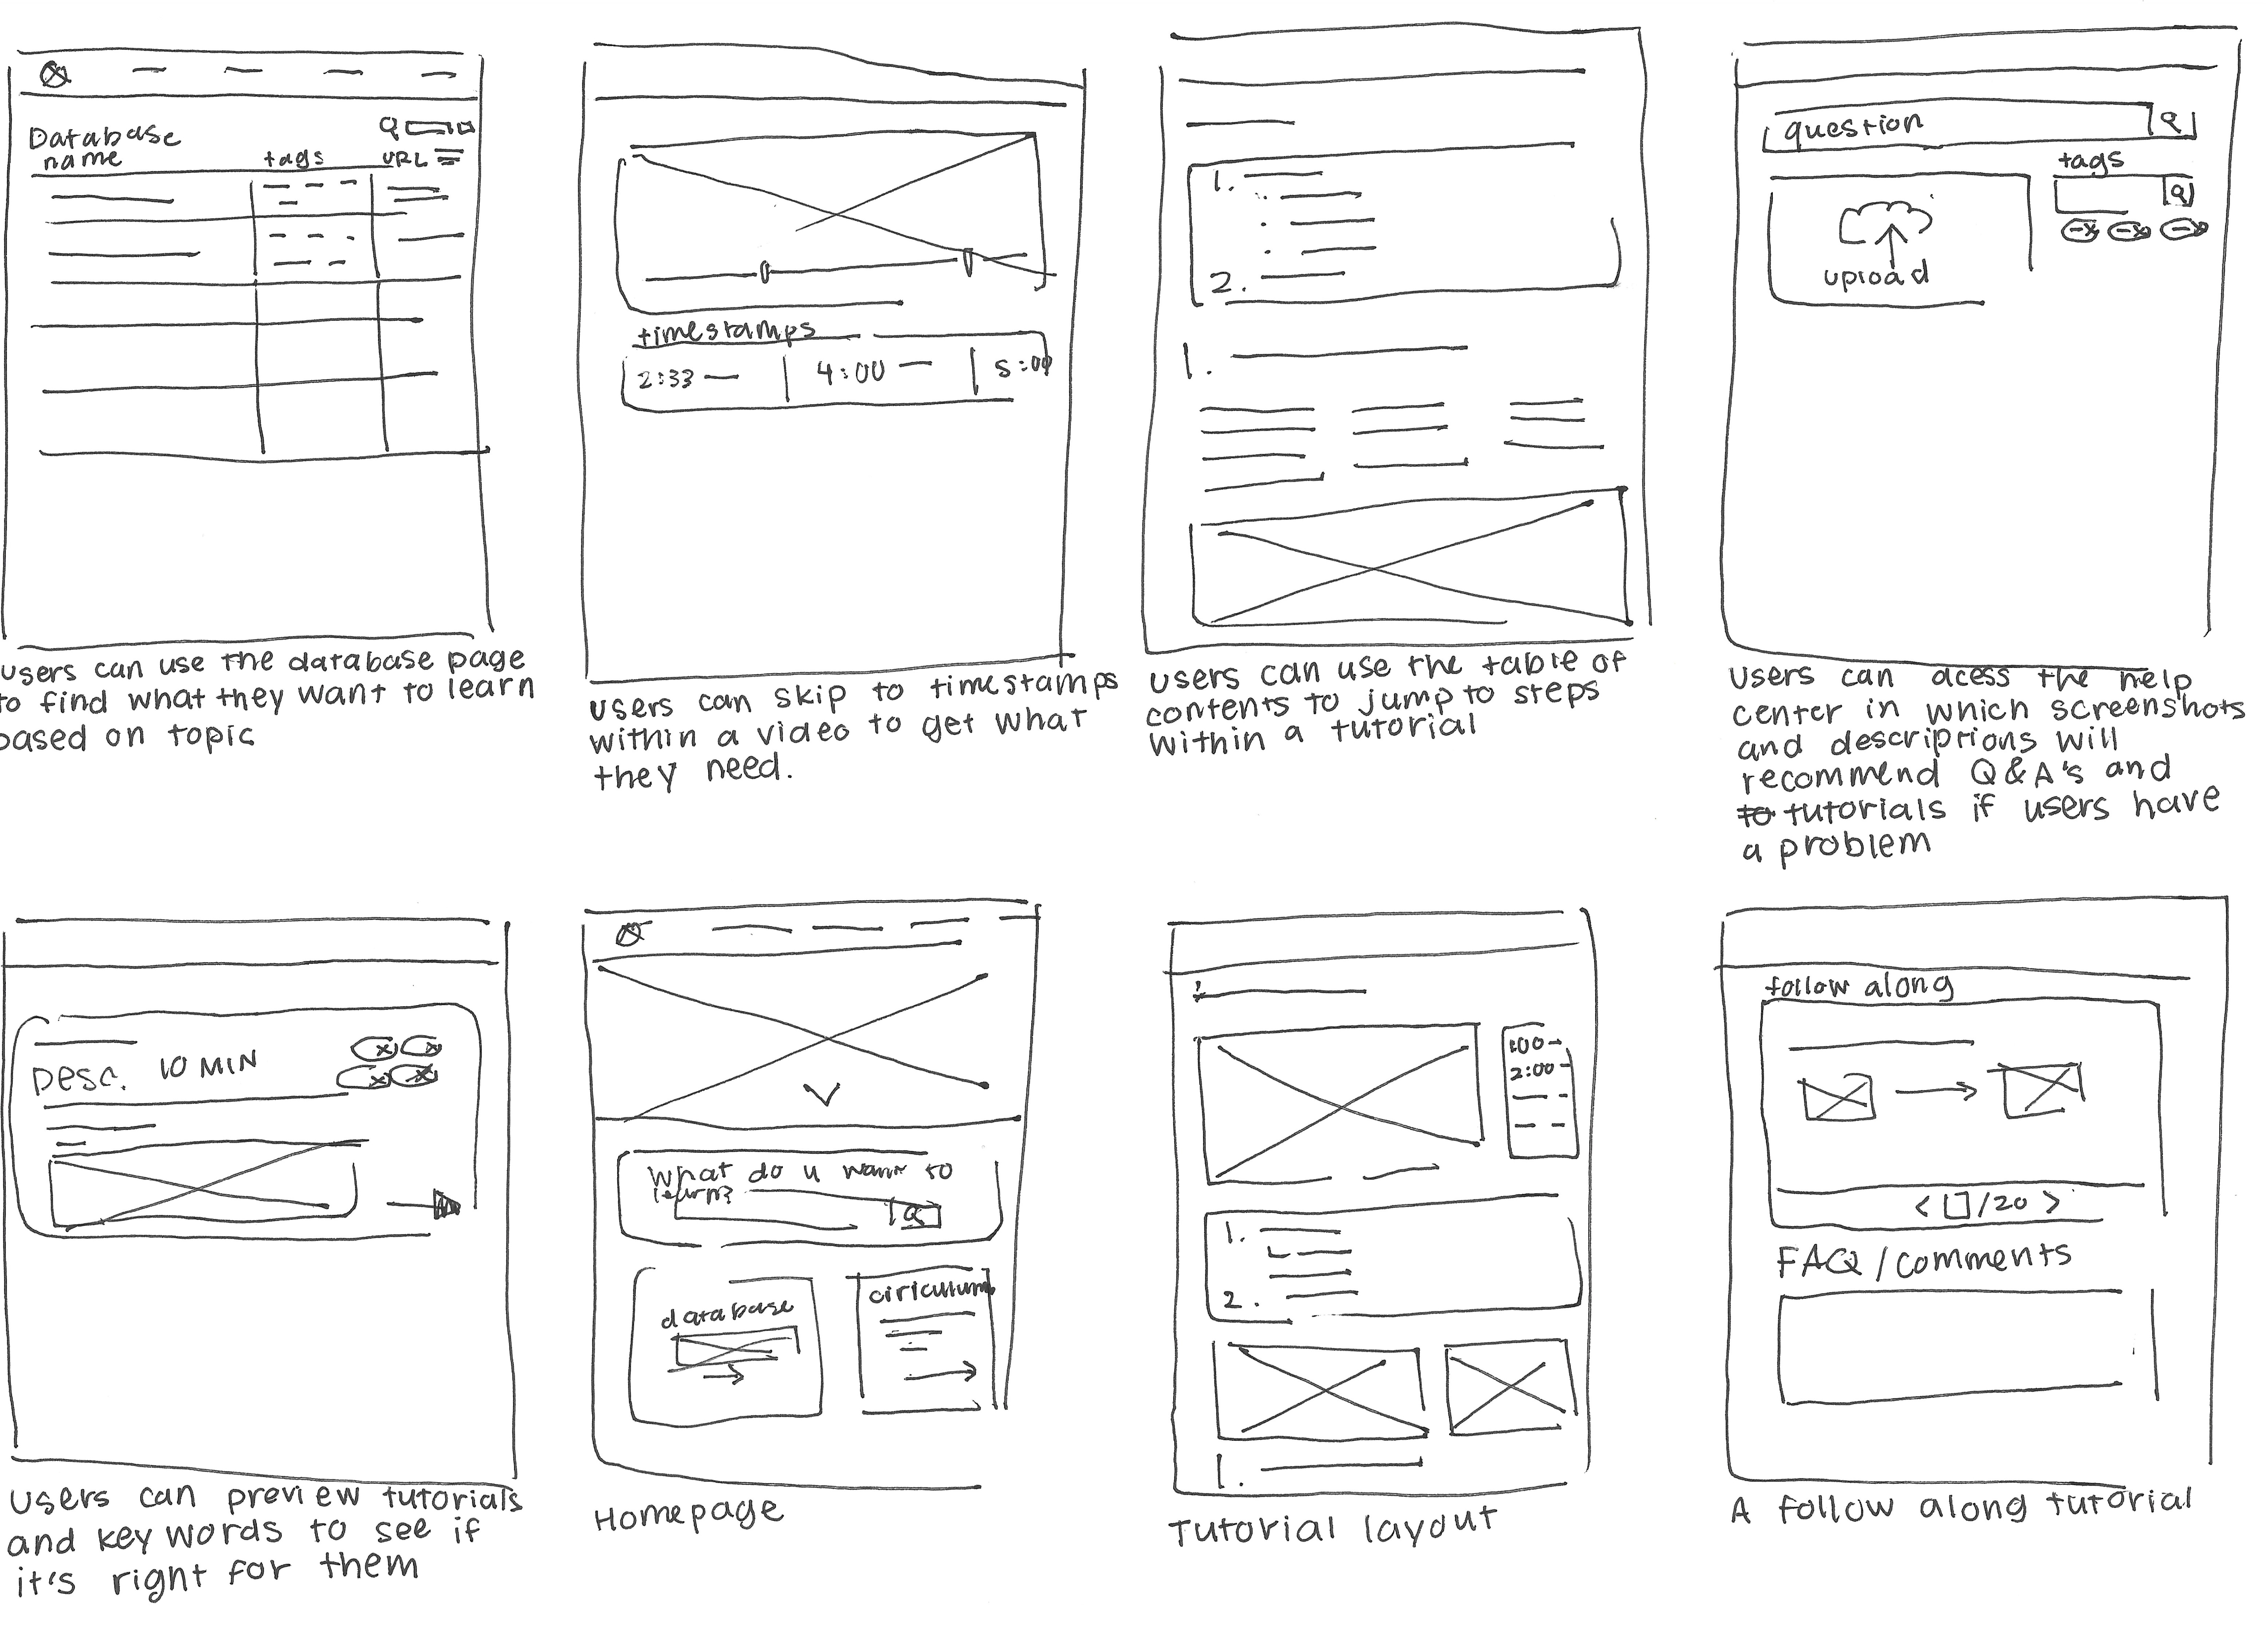 Database
name tags URL
users can use the database page
to find what they want to learn
based on topic
timestamps
2:33 4:00 5:00
users can skip to timestamps
within a video to get what
they need.
1.
2.
1.
users can use the table of
contents to jump to steps
within a tutorial
question
tags
upload
users can acess the help
center in which screenshots
and descriptions will
recommend Q&A's and
to tutorials if users have
a problem
Desc. 10 MIN
users can preview tutorials
and key words to see if
it's right for them
What do u want to
learn?
database
ciriculum
Homepage
1:00
2:00
1.
2.
1.
Tutorial layout
follow along
< /20 >
FAQ/comments
A follow along tutorial